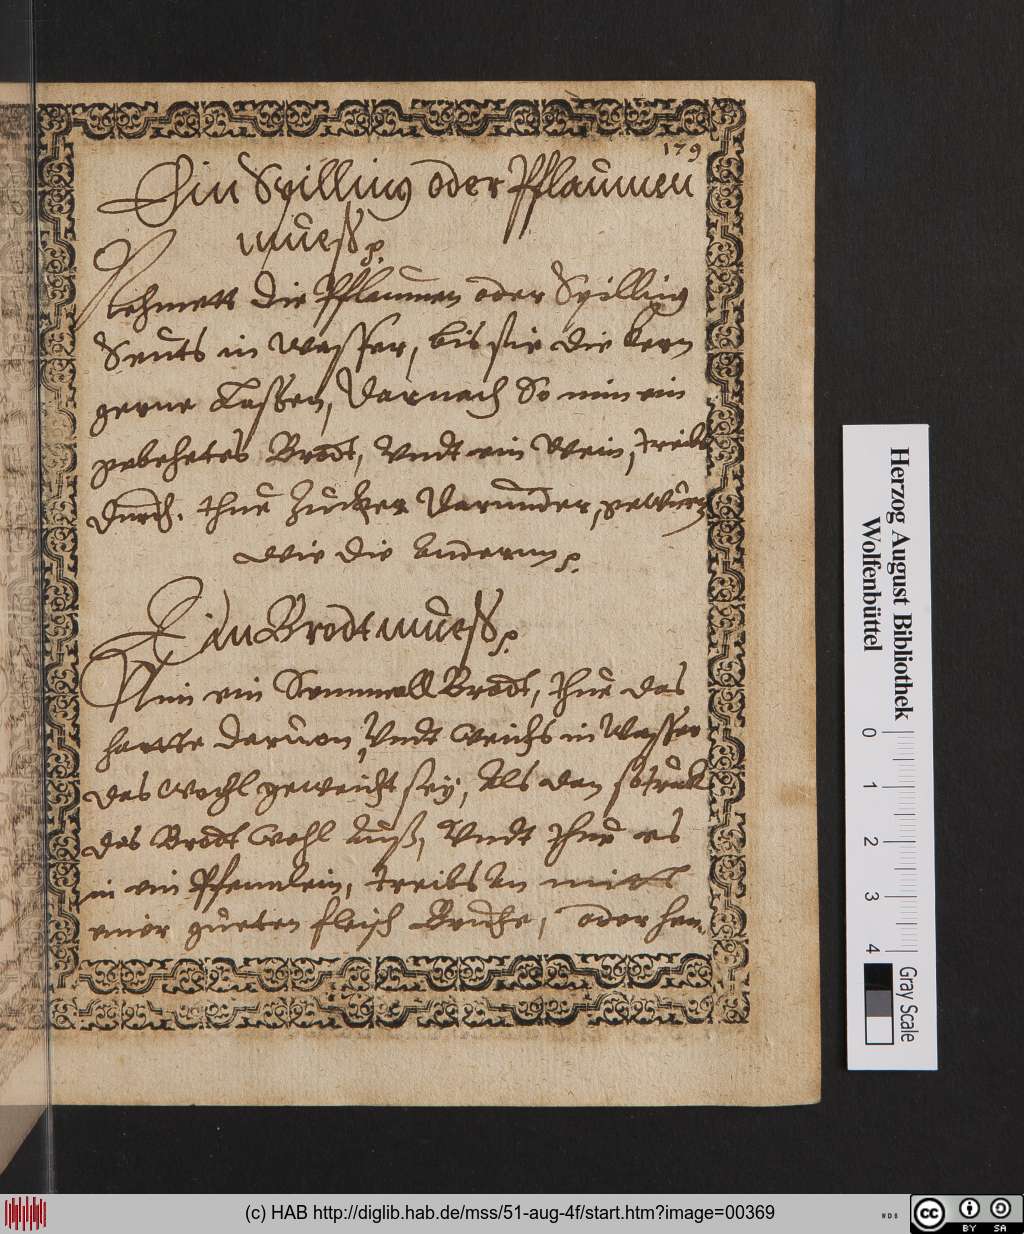 179
Ein Spilling oder Pflaumen
mueß
Nehmett die Pflaumen oder Spilling
Seuts in Wasser, bis sie die kern
gerne Lassen, Darnach So nim ein
gebehetes Brodt, Vndt ein Wein, treibs
durch. thue Zucker Darunder, gewürtz
wie die Anderen
Ein Brodt mueß
Nim ein Semmell Brodt, thue das
hartte daruon, Vndt weichs in Wasser
das wohl geweicht sey, Als dan so truck
das Brodt wohl Auß, Vndt thue es
in ein Pfennlein, treibs An mitt
einer gueten fleisch Brüehe, oder hen
Herzog August Bibliothek
Wolfenbüttel
0 1 2 3 4
Gray Scale
(c) HAB http://diglib.hab.de/mss/51-aug-4f/start.htm?image=00369
WDB
cc BY SA